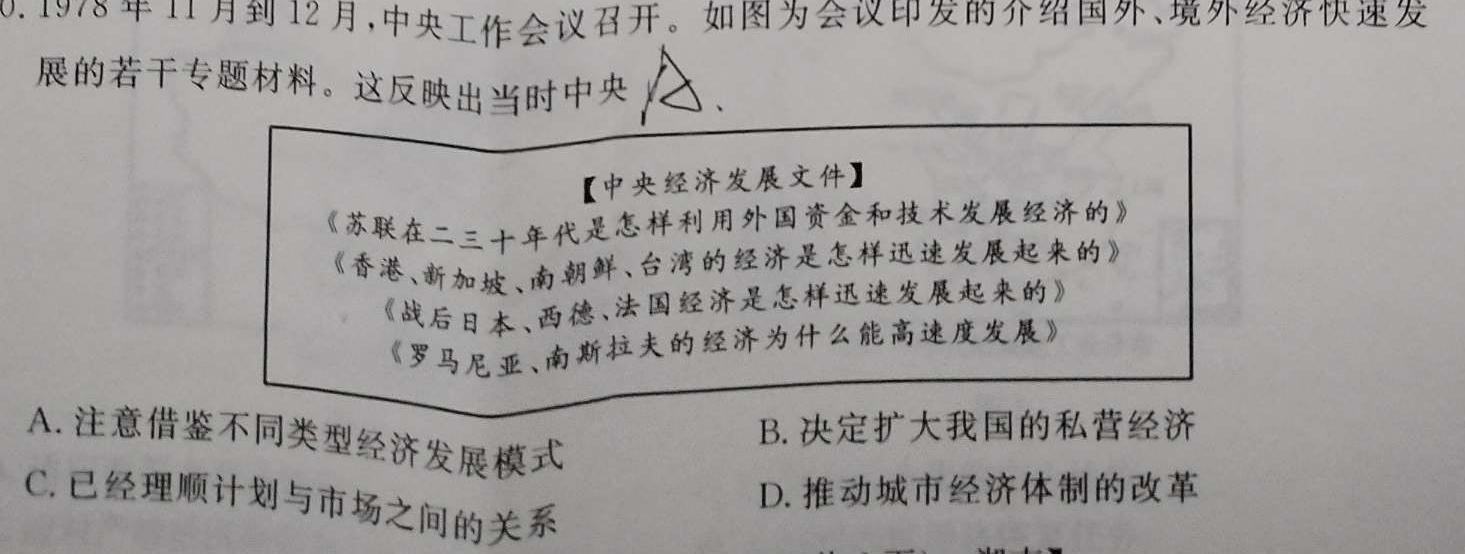 0. 1978 年 11 月到 12 月,中央工作会议召开。如图为会议印发的介绍国外、境外经济快速发
展的若干专题材料。这反映出当时中央 A、
【中央经济发展文件】
《苏联在二三十年代是怎样利用外国资金和技术发展经济的》
《香港、新加坡、南朝鲜、台湾的经济是怎样迅速发展起来的》
《战后日本、西德、法国经济是怎样迅速发展起来的》
《罗马尼亚、南斯拉夫的经济为什么能高速度发展》
A. 注意借鉴不同类型经济发展模式
B. 决定扩大我国的私营经济
C. 已经理顺计划与市场之间的关系
D. 推动城市经济体制的改革